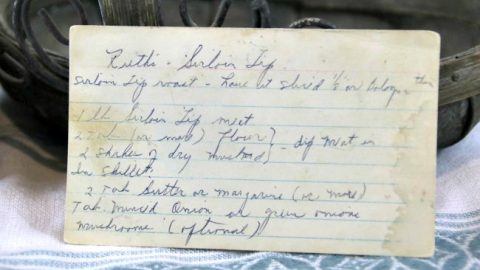 Ruth's - Sirloin Tip
Sirloin Tip roast - have it sliced 1/2 or bologna thin
1 lb Sirloin Tip meat
2 Tab (or more) flour } - dip meat in
2 shakes of dry mustard }
In Skillet:
2 Tab butter or margarine (or more)
Tab minced Onion or green onions
mushrooms (optional)